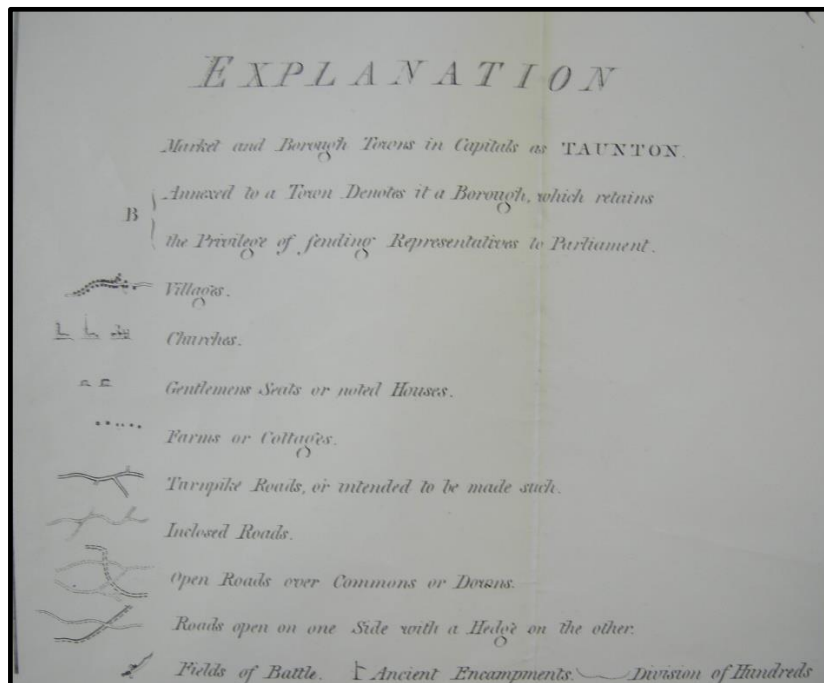 EXPLANATION
Market and Borough Towns in Capitals as TAUNTON.
B { Annexed to a Town Denotes it a Borough, which retains
the Privilege of ſending Representatives to Parliament.
Villages.
Churches.
Gentlemens Seats or noted Houses.
Farms or Cottages.
Turnpike Roads, or intended to be made such.
Inclosed Roads.
Open Roads over Commons or Downs.
Roads open on one Side with a Hedge on the other.
Fields of Battle. Ancient Encampments. Division of Hundreds